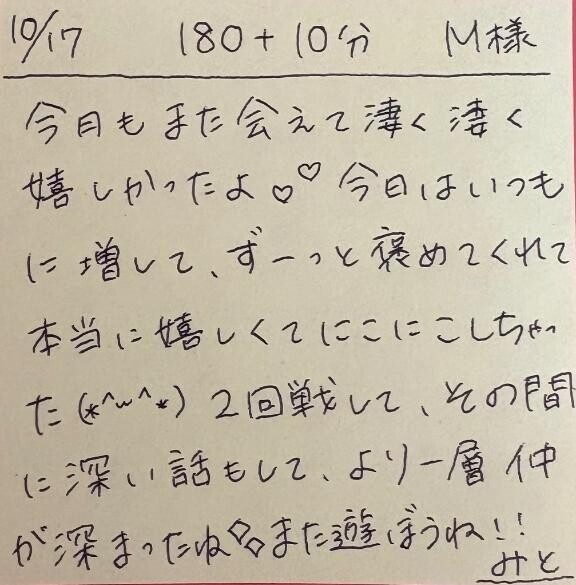 10/17 180+10分 M様
今日もまた会えて凄く凄く
嬉しかったよ♡♡今日はいつも
に増して、ずーっと褒めてくれて
本当に嬉しくてにこにこしちゃっ
た(*^~^*) 2回戦して、その間
に深い話もして、より一層仲
が深まったね◇◇また遊ぼうね!!
みと